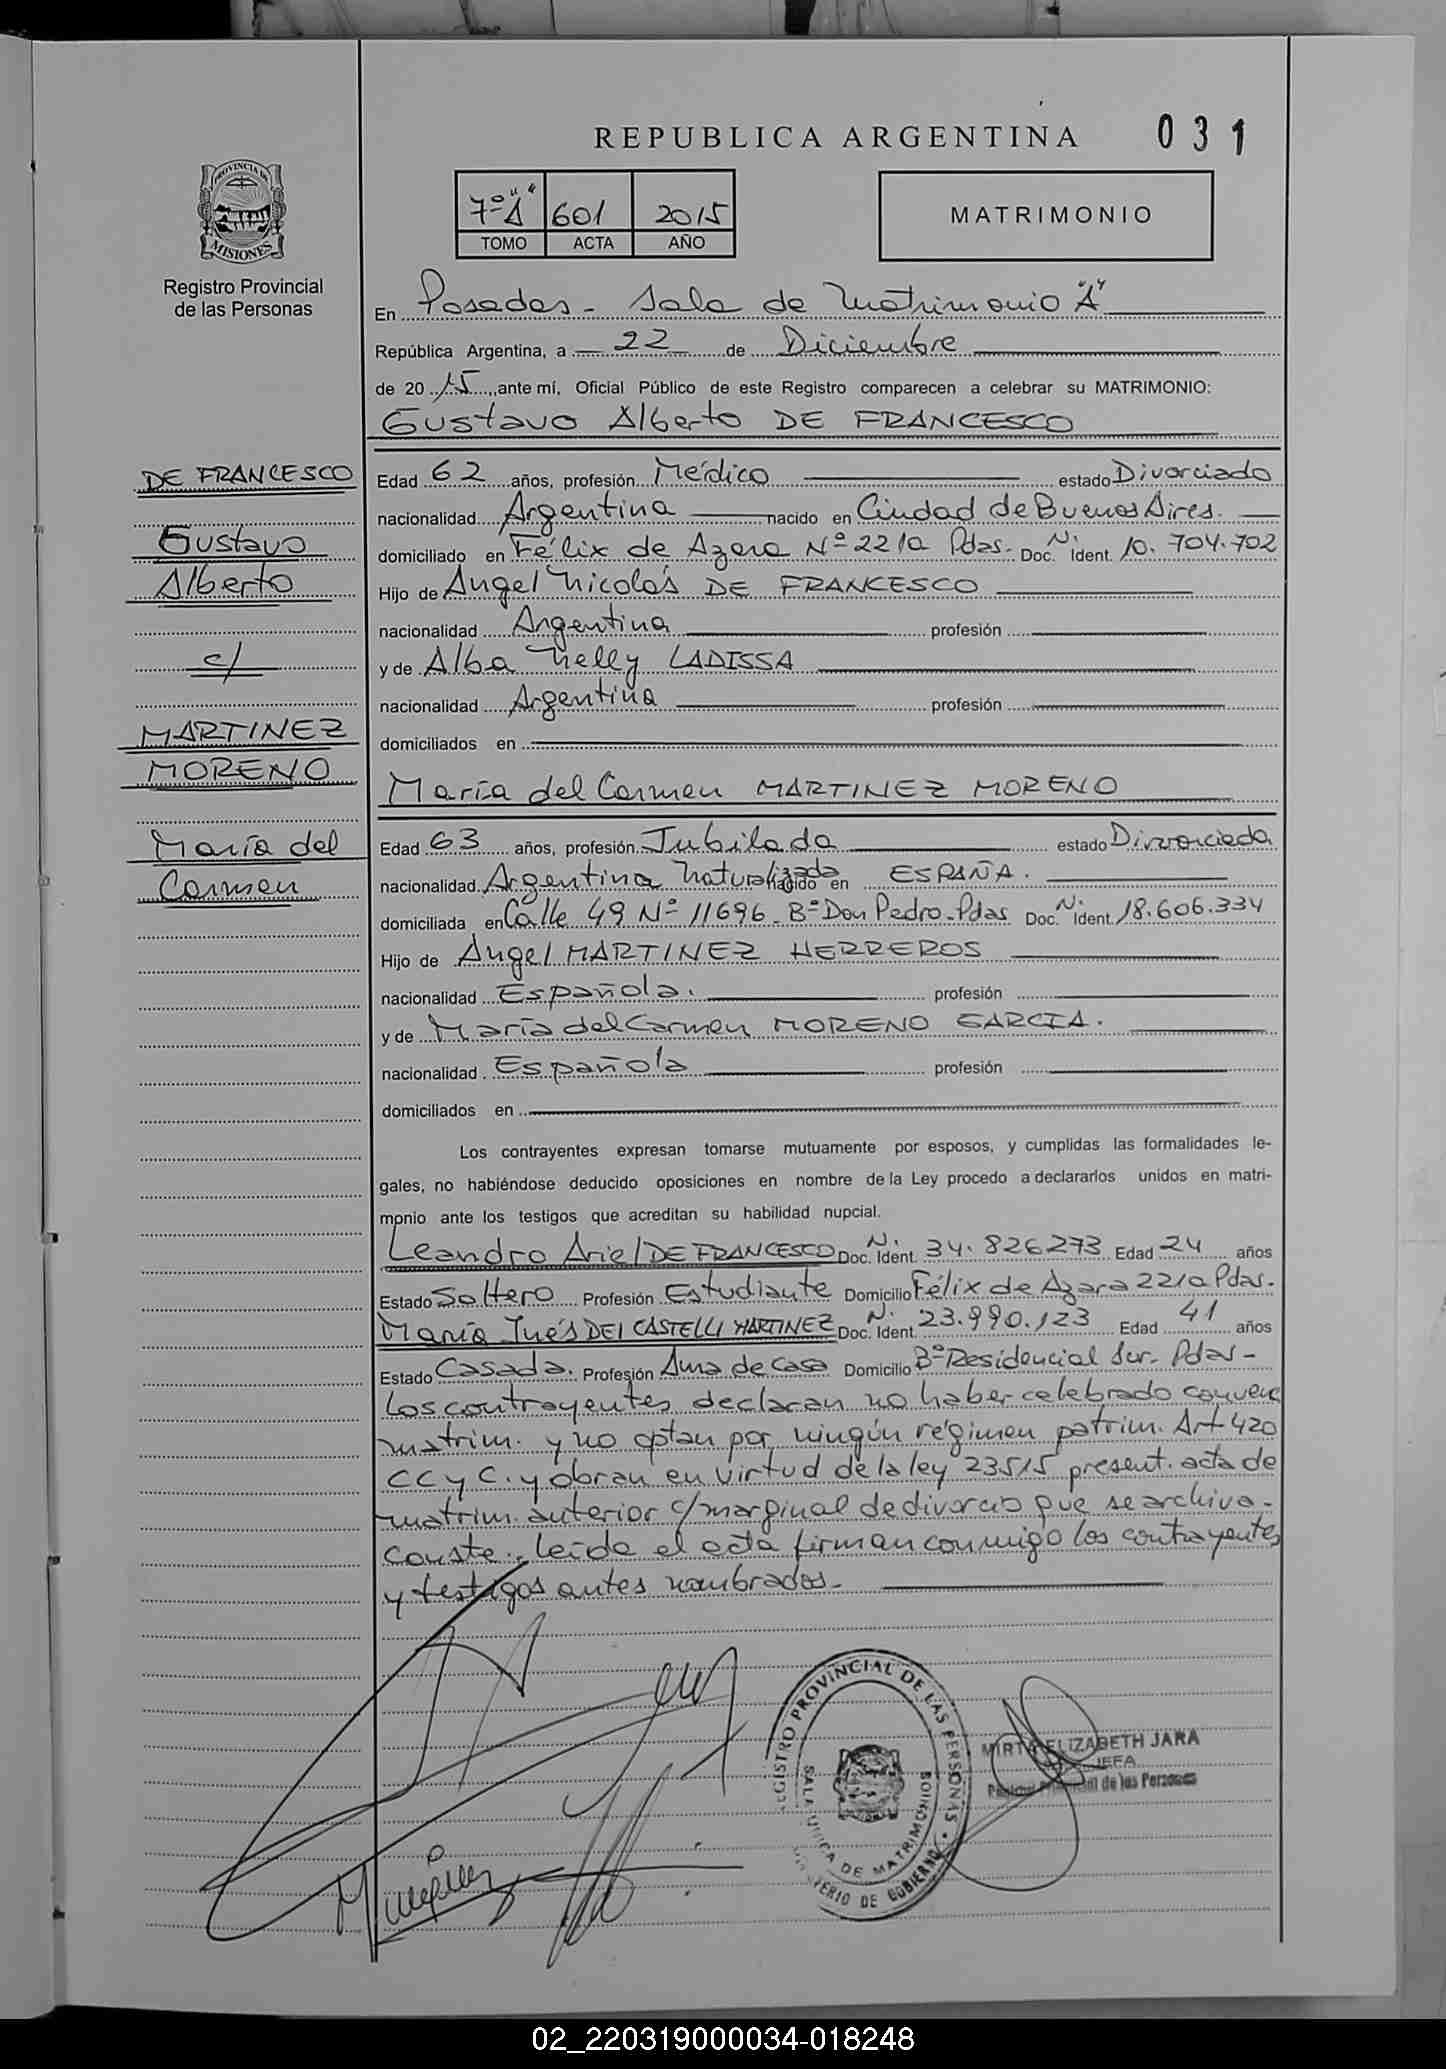 REPUBLICA ARGENTINA
031
PROVINCIA DE
MISIONES
Registro Provincial
de las Personas
7º "A" 601 2015
TOMO ACTA AÑO
MATRIMONIO
En Posadas - Sala de Matrimonio "A"
República Argentina, a 22 de Diciembre
de 2015, ante mí, Oficial Público de este Registro comparecen a celebrar su MATRIMONIO:
Gustavo Alberto DE FRANCESCO
DE FRANCESCO
Gustavo
Alberto
c/
MARTINEZ
MORENO
María del
Carmen
Edad 62 años, profesión Médico estado Divorciado
nacionalidad Argentina nacido en Ciudad de Buenos Aires.
domiciliado en Félix de Azara Nº 2210 Pdas. Doc. N. Ident. 10.704.702
Hijo de Angel Nicolás DE FRANCESCO
nacionalidad Argentina profesión
y de Alba Nelly LADISSA
nacionalidad Argentina profesión
domiciliados en
María del Carmen MARTINEZ MORENO
Edad 63 años, profesión Jubilada estado Divorciada
nacionalidad Argentina Naturalizada nacido en ESPAÑA.
domiciliada en Calle 49 Nº 11696 - Bº Don Pedro - Pdas Doc. N. Ident. 18.606.334
Hijo de Angel MARTINEZ HERREROS
nacionalidad Española. profesión
y de María del Carmen MORENO GARCIA.
nacionalidad Española profesión
domiciliados en
Los contrayentes expresan tomarse mutuamente por esposos, y cumplidas las formalidades le-
gales, no habiéndose deducido oposiciones en nombre de la Ley procedo a declararlos unidos en matri-
monio ante los testigos que acreditan su habilidad nupcial.
Leandro Ariel DE FRANCESCO Doc. N. Ident. 34.826.273 Edad 24 años
Estado Soltero Profesión Estudiante Domicilio Félix de Azara 2210 Pdas.
María Inés DEI CASTELLI MARTINEZ Doc. N. Ident. 23.990.123 Edad 41 años
Estado Casada. Profesión Ama de Casa Domicilio Bº Residencial Sur - Pdas -
Los contrayentes declaran no haber celebrado convenc
matrim. y no optan por ningún régimen patrim. Art 420
CC y C. y obran en virtud de la ley 23515 present. acta de
matrim. anterior c/marginal de divorcio que se archiva -
conste. Leída el acta firman conmigo los contrayentes
y testigos antes nombrados -
REGISTRO PROVINCIAL DE LAS PERSONAS
SALA UNICA DE MATRIMONIOS
MINISTERIO DE GOBIERNO
MIRTA ELIZABETH JARA
JEFA
Registro Provincial de las Personas
02_220319000034-018248